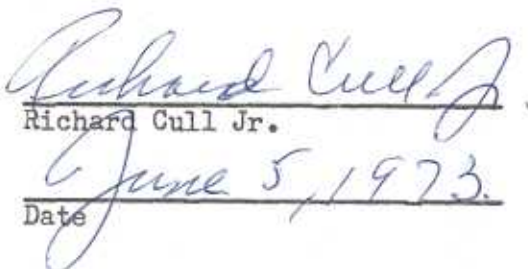 Richard Cull Jr
Richard Cull Jr.
June 5, 1973.
Date